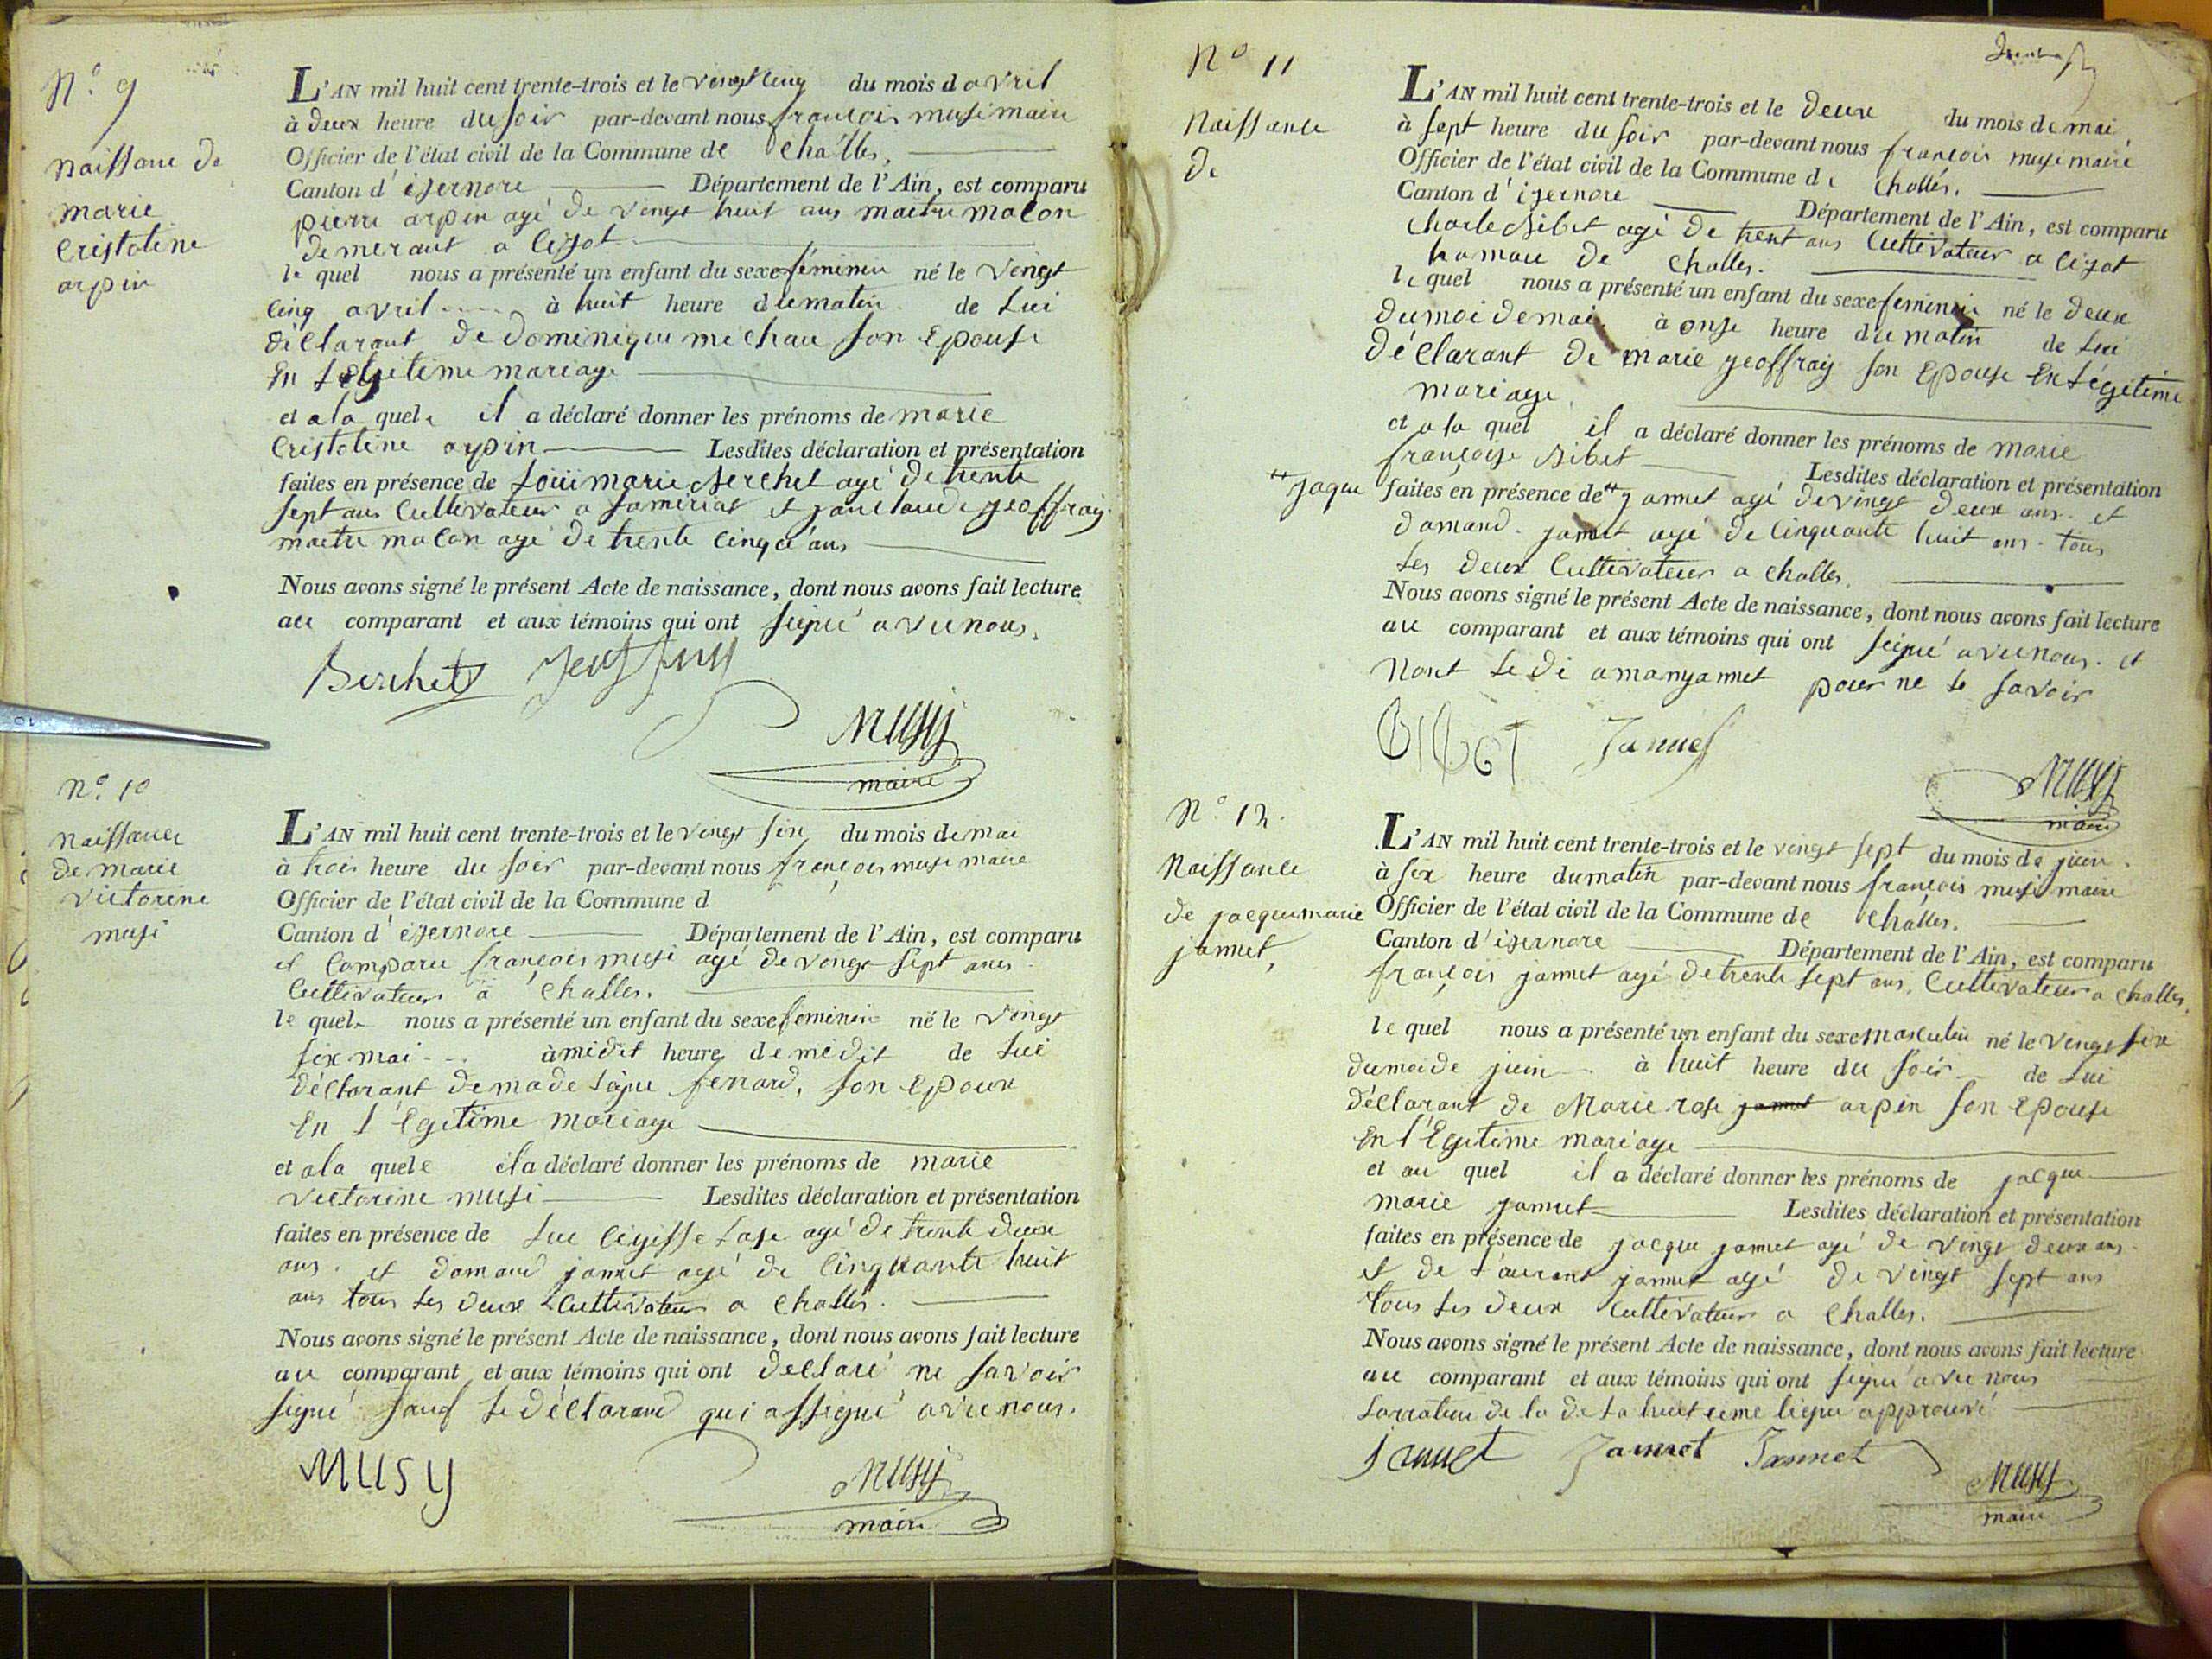 N.o 9
naissane de
marie
Cristoline
arpin
L'AN mil huit cent trente-trois et le vingt cinq du mois d avril
à deux heure du soir par-devant nous françois musi maire
Officier de l'état civil de la Commune de Challes,
Canton d'izernore Département de l'Ain, est comparu
pierre arpin agé de vingt huit ans maitre macon
demerant a Cizot
le quel nous a présenté un enfant du sexe féminin né le vingt
cinq avril à huit heure du matin de Lui
déClarant de dominique michau son Epouse
En Legitime mariage
et a la quele il a déclaré donner les prénoms de marie
Cristoline arpin Lesdites déclaration et présentation
faites en présence de Loüi marie Berchet agé de trente
sept ans Cultivateur a Samériat et jan claude geoffray
maitre macon agé de trente cinqe ans
Nous avons signé le présent Acte de naissance, dont nous avons fait lecture
au comparant et aux témoins qui ont signé avec nous.
Berchet Jeoffray
MUSY
maire
N.o 10
naissance
de marie
victorine
musi
L'AN mil huit cent trente-trois et le vingt six du mois de mai
à trois heure du soir par-devant nous françois musi maire
Officier de l'état civil de la Commune d
Canton d'izernore Département de l'Ain, est comparu
et Comparu françois musi agé de vingt sept ans
Cultivateur a Challes.
le quel nous a présenté un enfant du sexe feminin né le vingt
six mai à midit heure de midit de Lui
déClarant de made Laine fenard, son Epoux
En L Egitime mariage
et a la quele il a déclaré donner les prénoms de marie
victorine musi Lesdites déclaration et présentation
faites en présence de Luc agé de trente deux
ans. et damand jannet agé de Cinquante huit
ans tous Les deux Cultivateur a Challes.
Nous avons signé le présent Acte de naissance, dont nous avons fait lecture
au comparant et aux témoins qui ont déClaré ne savoir
signé sauf Le déClarand qui assigné avec nous.
MUSY
MUSY
maire
N.o 11
Naissance
de
L'AN mil huit cent trente-trois et le deux du mois de mai
à sept heure du soir par-devant nous françois musi maire
Officier de l'état civil de la Commune de Challes.
Canton d'izernore Département de l'Ain, est comparu
Charle Bibet agé de trent ans Cultivateur a Cizot
hamau de Challes.
le quel nous a présenté un enfant du sexe feminin né le deux
du moi de mai à onze heure du matin de Lui
déClarant de marie geoffray son Epouse En Légitime
mariage
et a la quel il a déclaré donner les prénoms de marie
françoise Bibet Lesdites déclaration et présentation
jaque faites en présence de jannet agé de vingt deux ans et
damand. jannet agé de Cinquante huit ans. tous
Les deux Cultivateur a Challes.
Nous avons signé le présent Acte de naissance, dont nous avons fait lecture
au comparant et aux témoins qui ont signé avec nous. et
Nont Le di aman jannet pour ne Le savoir
BIBET Jannet
MUSY
maire
N.o 12.
Naissance
de jacque marie
jannet,
L'AN mil huit cent trente-trois et le vingt sept du mois de juin.
à six heure du matin par-devant nous françois musi maire
Officier de l'état civil de la Commune de Challes.
Canton d'izernore Département de l'Ain, est comparu
françois jannet agé de trente sept ans. Cultivateur a Challes
le quel nous a présenté un enfant du sexe masculin né le vingt six
du moi de juin à huit heure du soir de Lui
déClarant de Marie rose jannet arpin son Epouse
En L'Egitime mariage
et au quel il a déclaré donner les prénoms de jacque
marie jannet Lesdites déclaration et présentation
faites en présence de jacque jannet agé de vingt deux ans
et de Laurant jannet agé de vingt sept ans
tous Les deux Cultivateur a Challes.
Nous avons signé le présent Acte de naissance, dont nous avons fait lecture
au comparant et aux témoins qui ont signé avec nous
La de la de La huit ieme ligne approuvé
Jannet Jannet Jannet
MUSY
maire